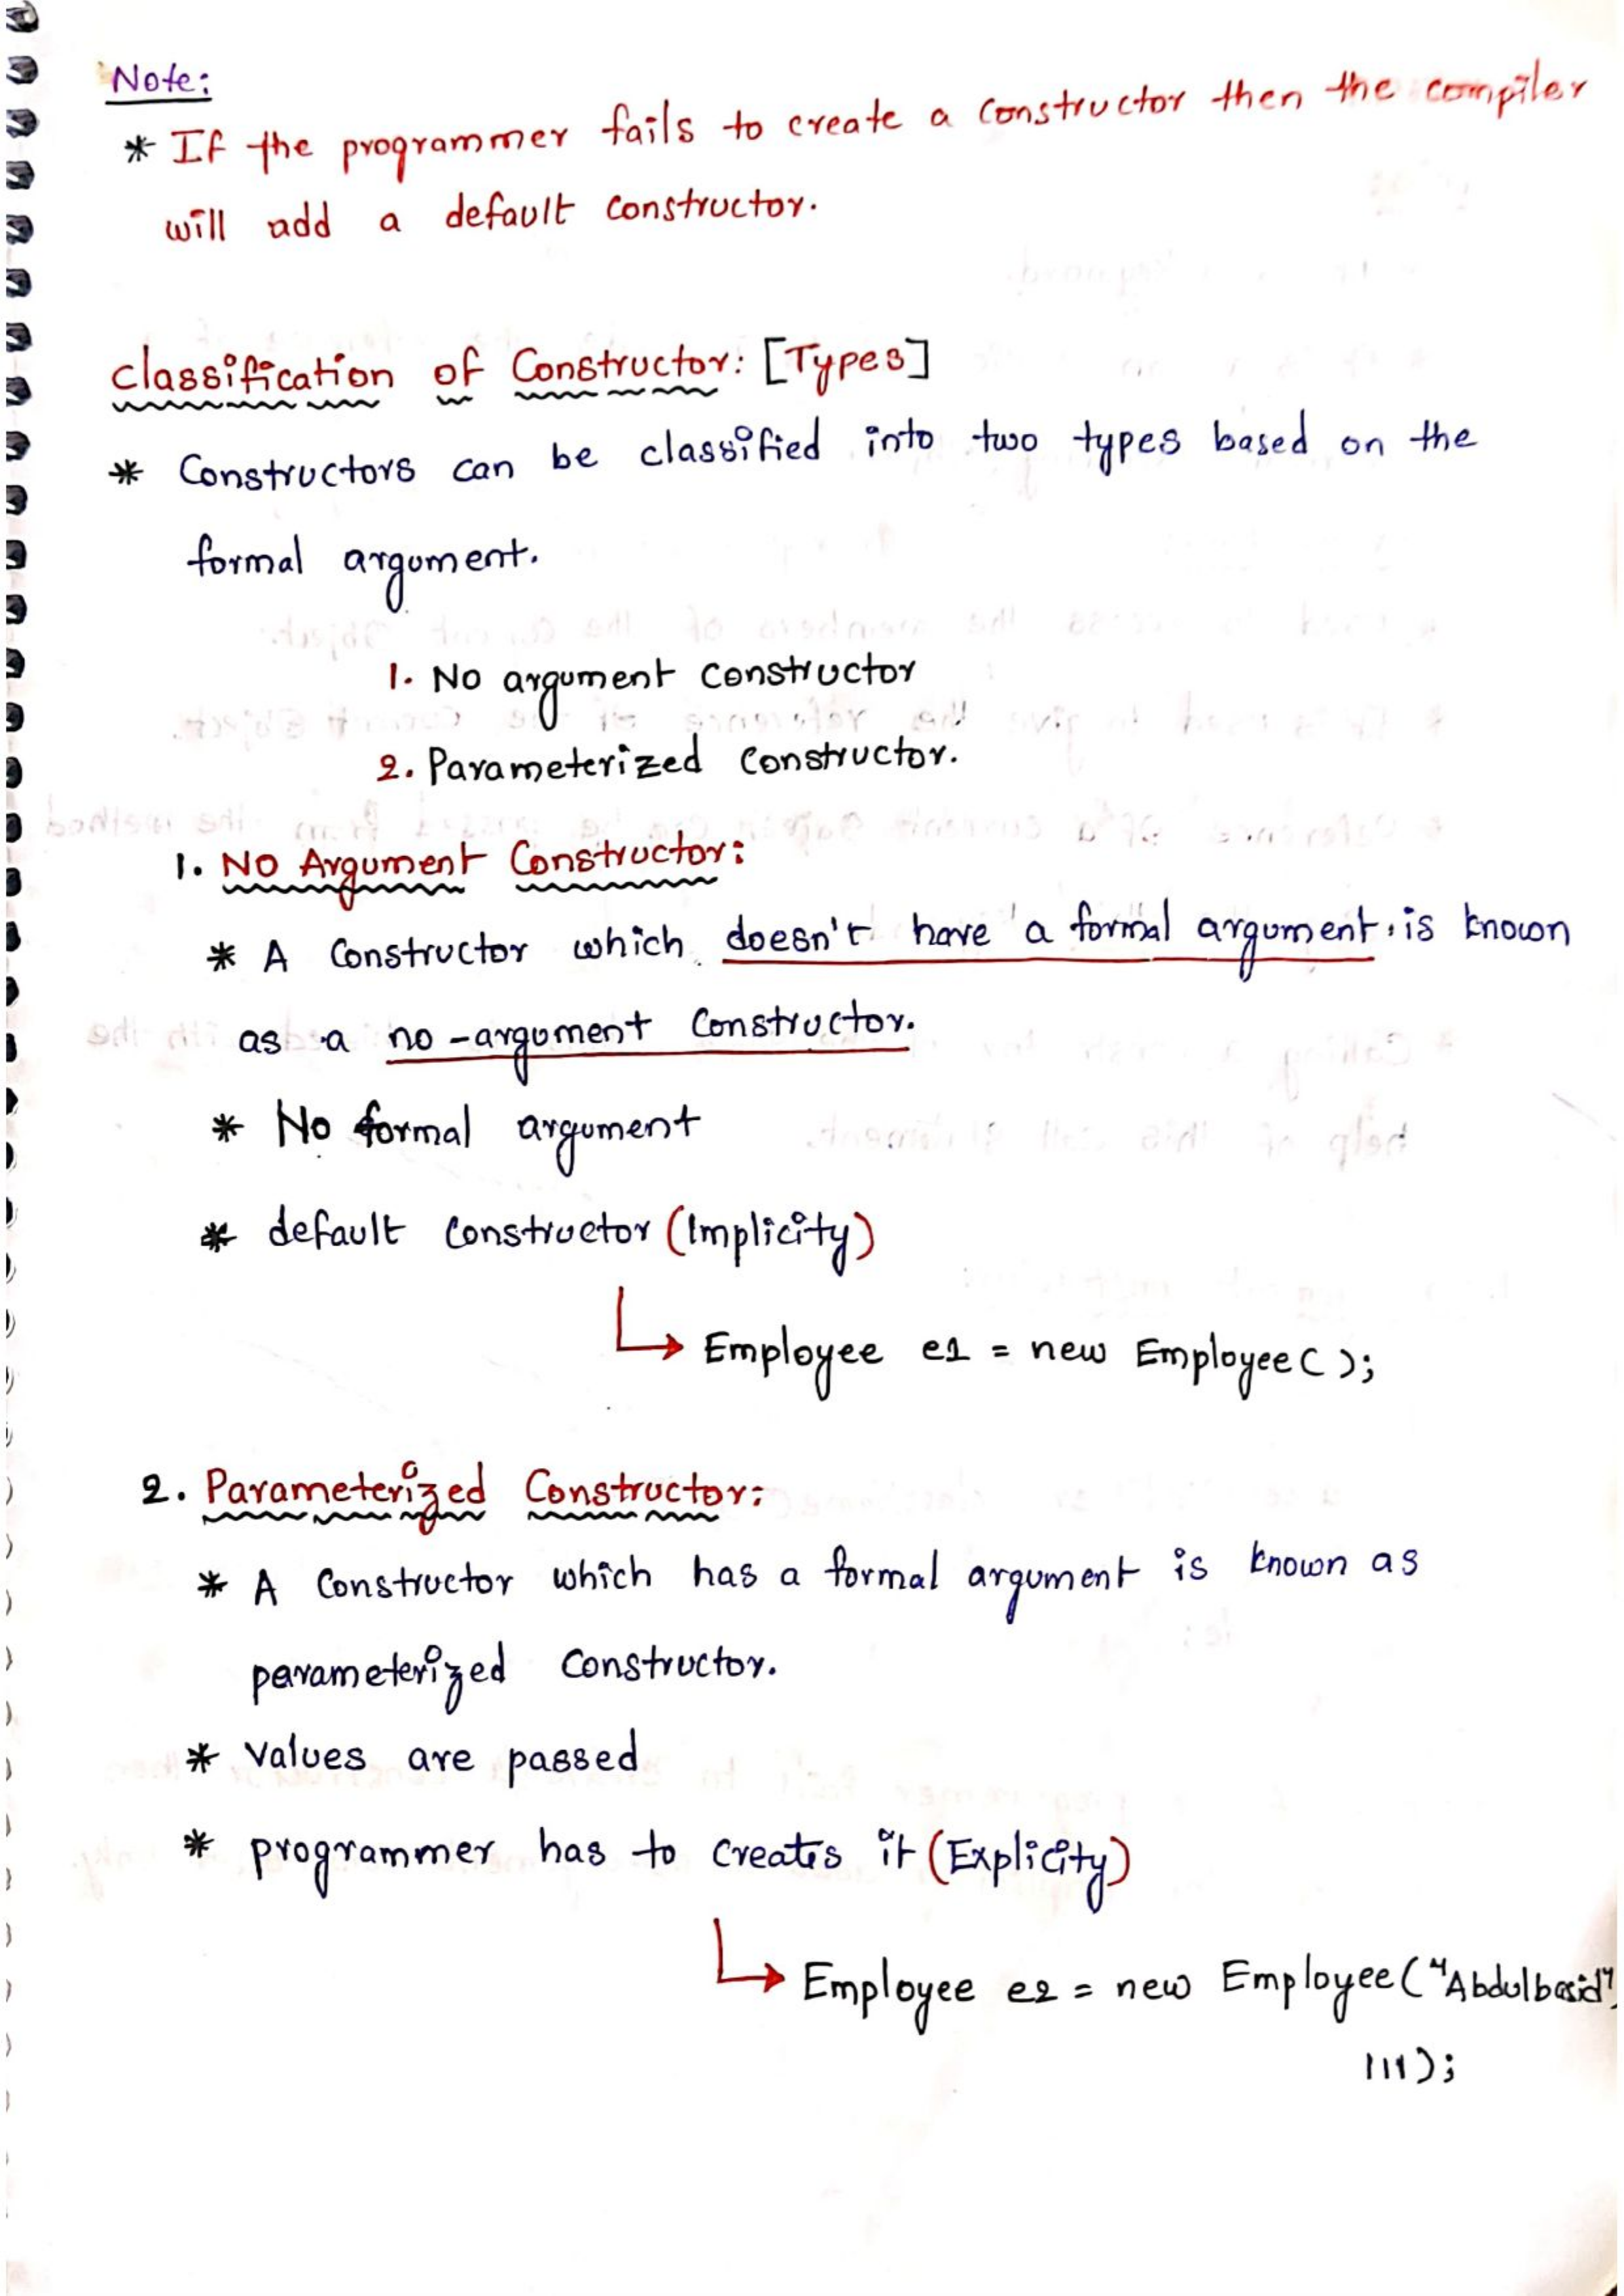 Note:
* If the programmer fails to create a constructor then the compiler
will add a default constructor.
Classification of Constructor: [Types]
* Constructors can be classified into two types based on the
formal argument.
1. No argument constructor
2. Parameterized constructor.
1. No Argument Constructor:
* A constructor which doesn't have a formal argument is known
as a no-argument constructor.
* No formal argument
* default constructor (Implicity)
Employee e1 = new Employee( );
2. Parameterized Constructor:
* A constructor which has a formal argument is known as
parameterized constructor.
* values are passed
* programmer has to creates it (Explicity)
Employee e2 = new Employee("Abdulbasid",
111);